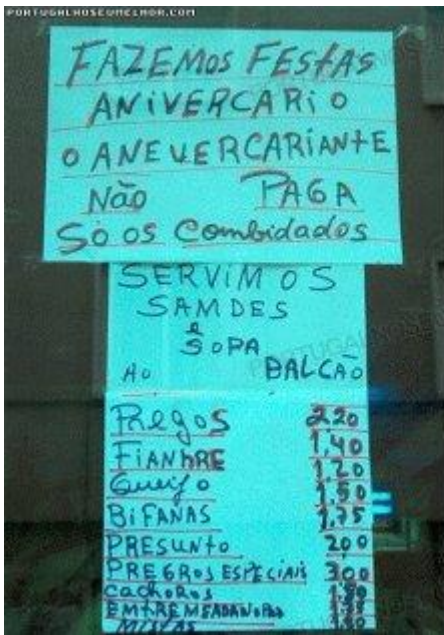 PORTUGALNOSEUMELHOR.COM
FAZEMOS FESTAS
ANIVERCARiO
O ANEVERCARiANtE
Não PAGA
Só os Combidados
SERVIMOS
SAMDES
e
SOPA
AO BALCÃO
Pregos 2,20
FiAMBRE 1,40
Queijo 1,20
BiFANAS 1,50
PRESUNtO 1,75
PREGROS ESPECIAIS 200
CACHOROS 300
EMTREMEADA
MiStAS